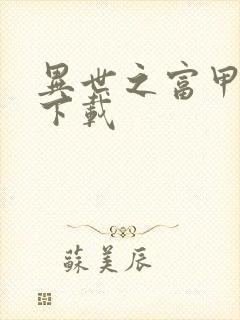 異世之富甲
下載
蘇美辰